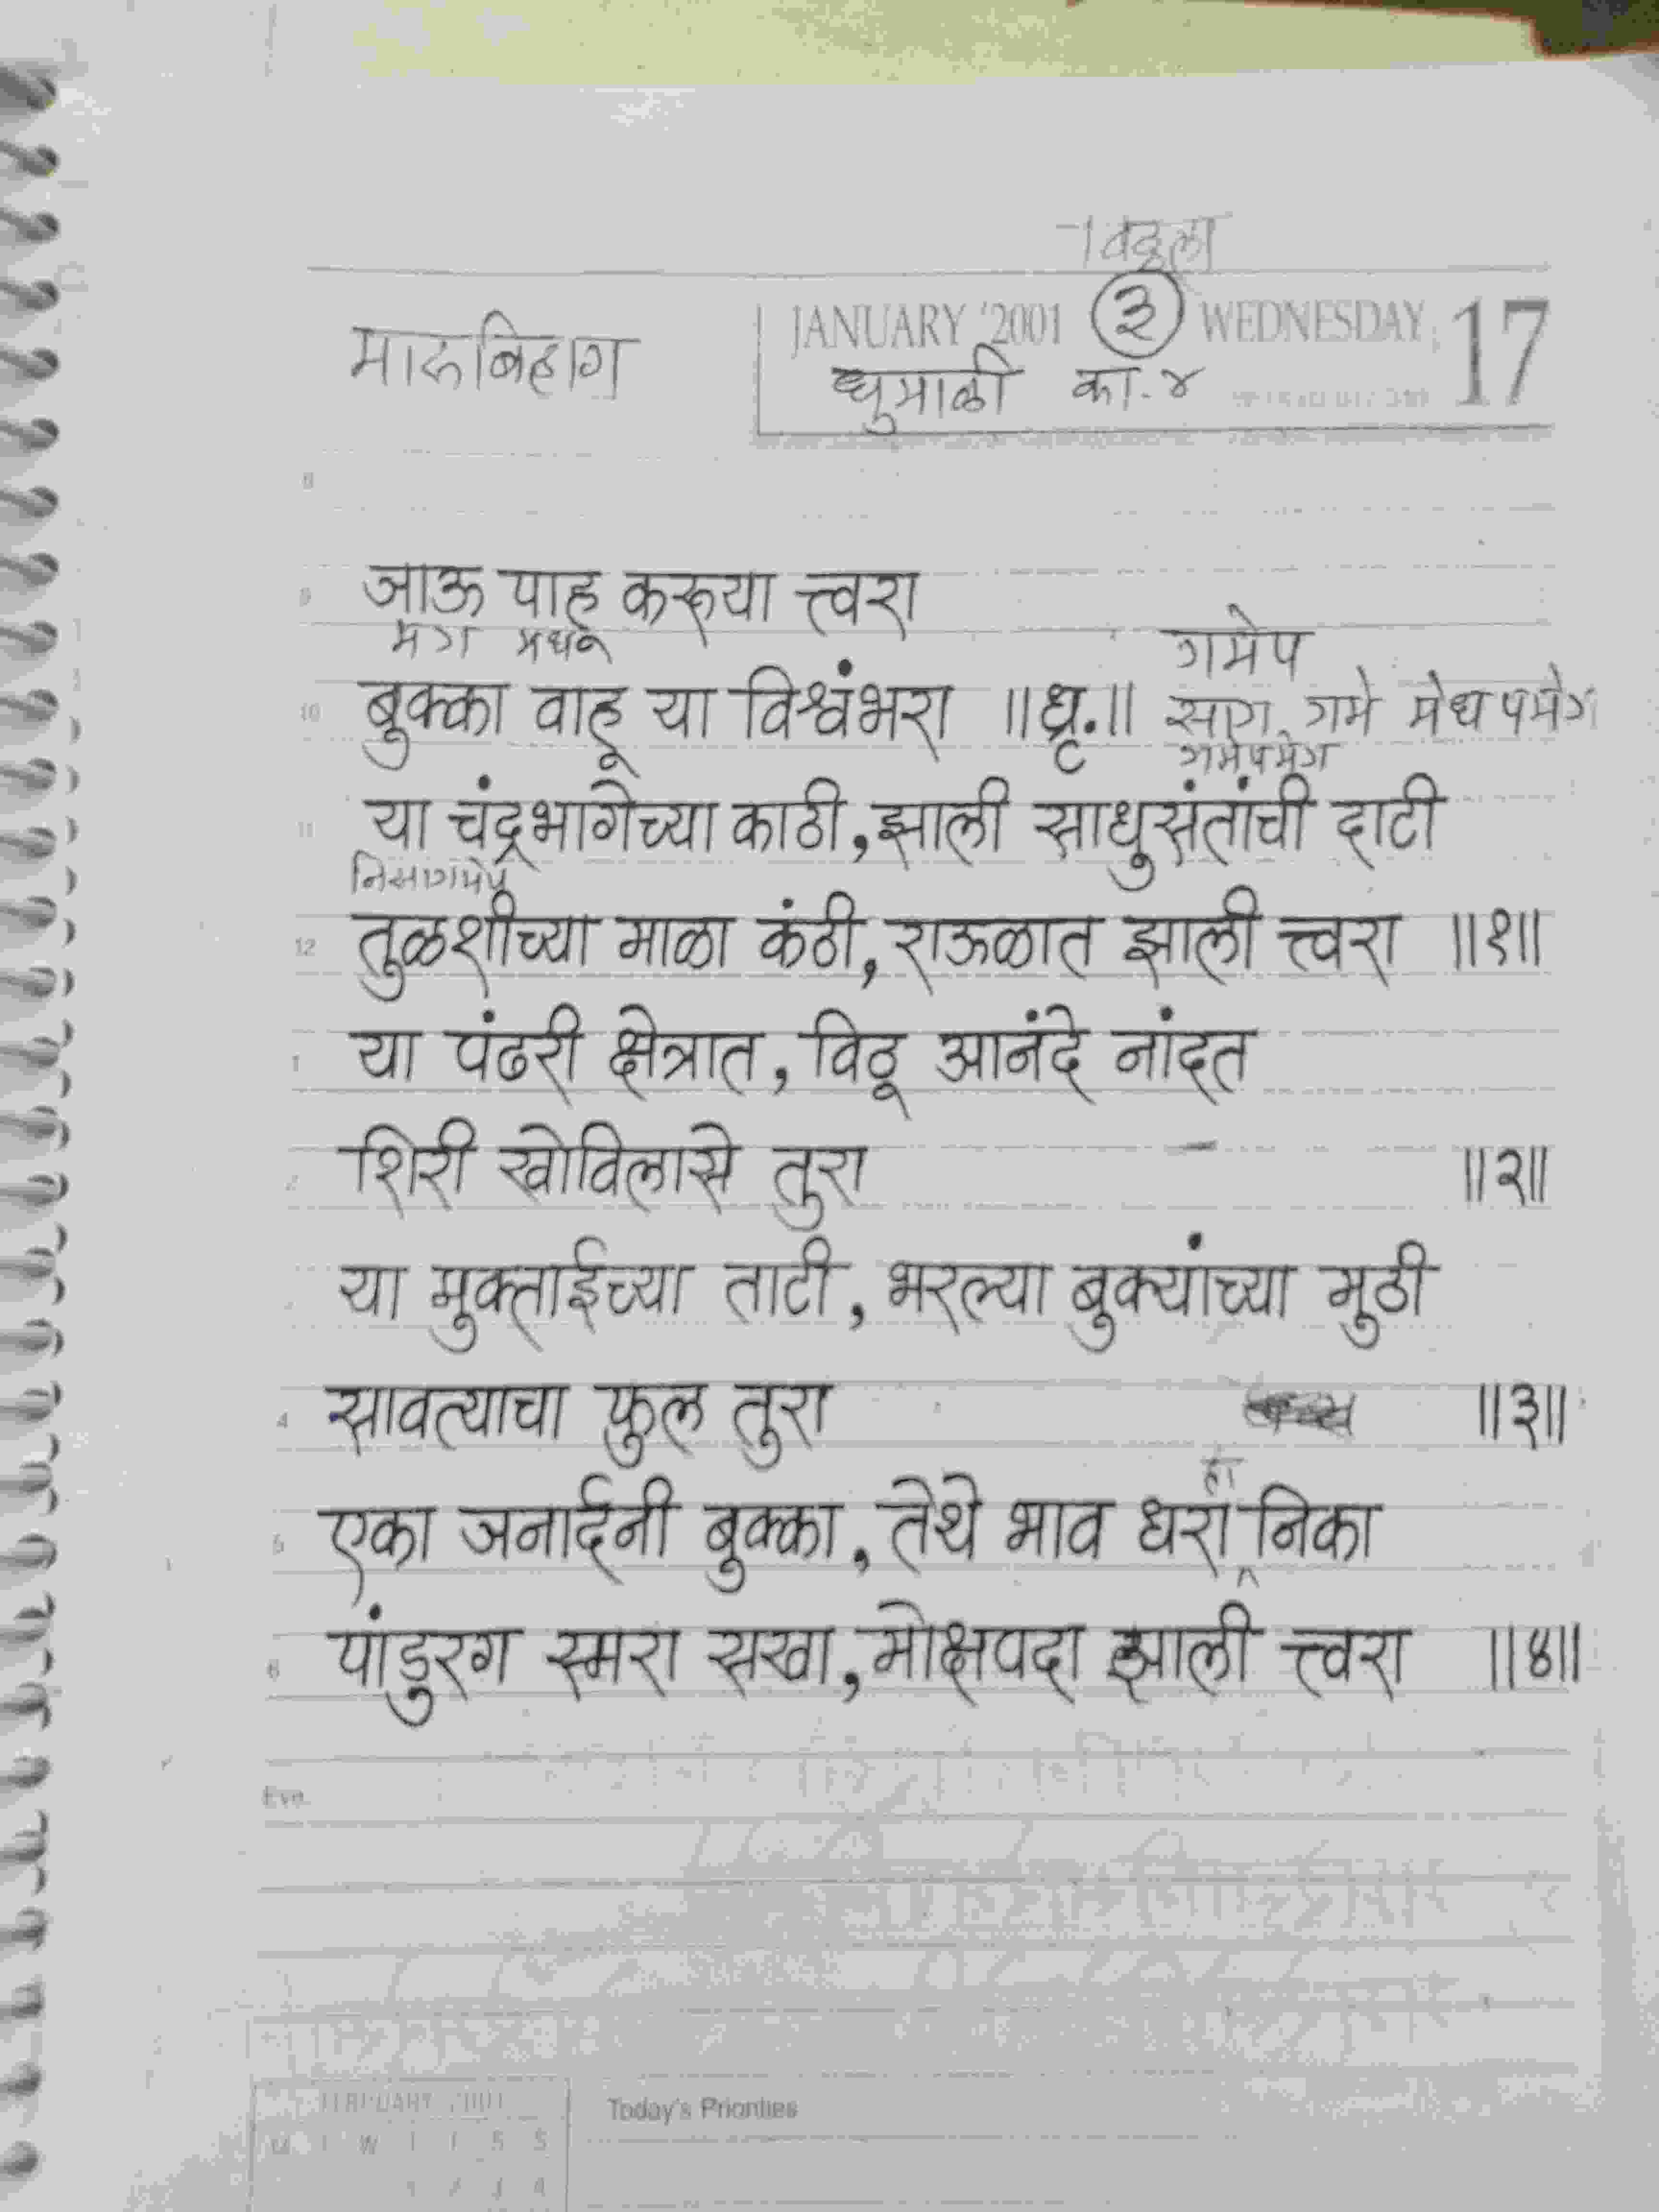 विठ्ठला
JANUARY '2001 ३ WEDNESDAY 17
मारुबिहाग
धुमाळी का-४
जाऊ पाहू करूया त्त्वरा
मग
गमेप
बुक्का वाहू या विश्वंभरा ॥ध्रृ.॥ साग गमे मेधपमेग
गमेपमेग
या चंद्रभागेच्या काठी, झाली साधुसंतांची दाटी
निसागमेप
तुळशीच्या माळा कंठी, राऊळात झाली त्त्वरा ॥१॥
या पंढरी क्षेत्रात, विठू आनंदे नांदत
शिरी खोविलासे तुरा ॥२॥
या मुक्ताईच्या ताटी, भरल्या बुक्यांच्या मुठी
सावत्याचा फुल तुरा ॥३॥
एका जनार्दनी बुक्का, तेथे भाव धरा निका
पांडुरग स्मरा सखा, मोक्षपदा झाली त्त्वरा ॥४॥
Eve.
FEBRUARY 2001
Today's Priorities